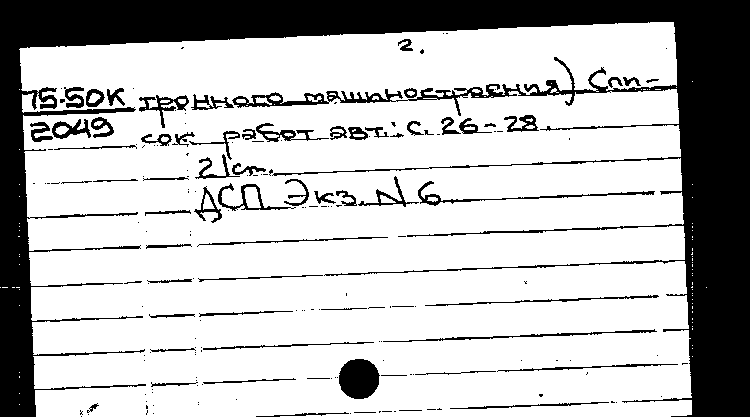 2.
75-50К тронного машиностроения) Спи-
2049 сок работ авт.: с. 26-28.
21см.
ДСП Экз. N 6